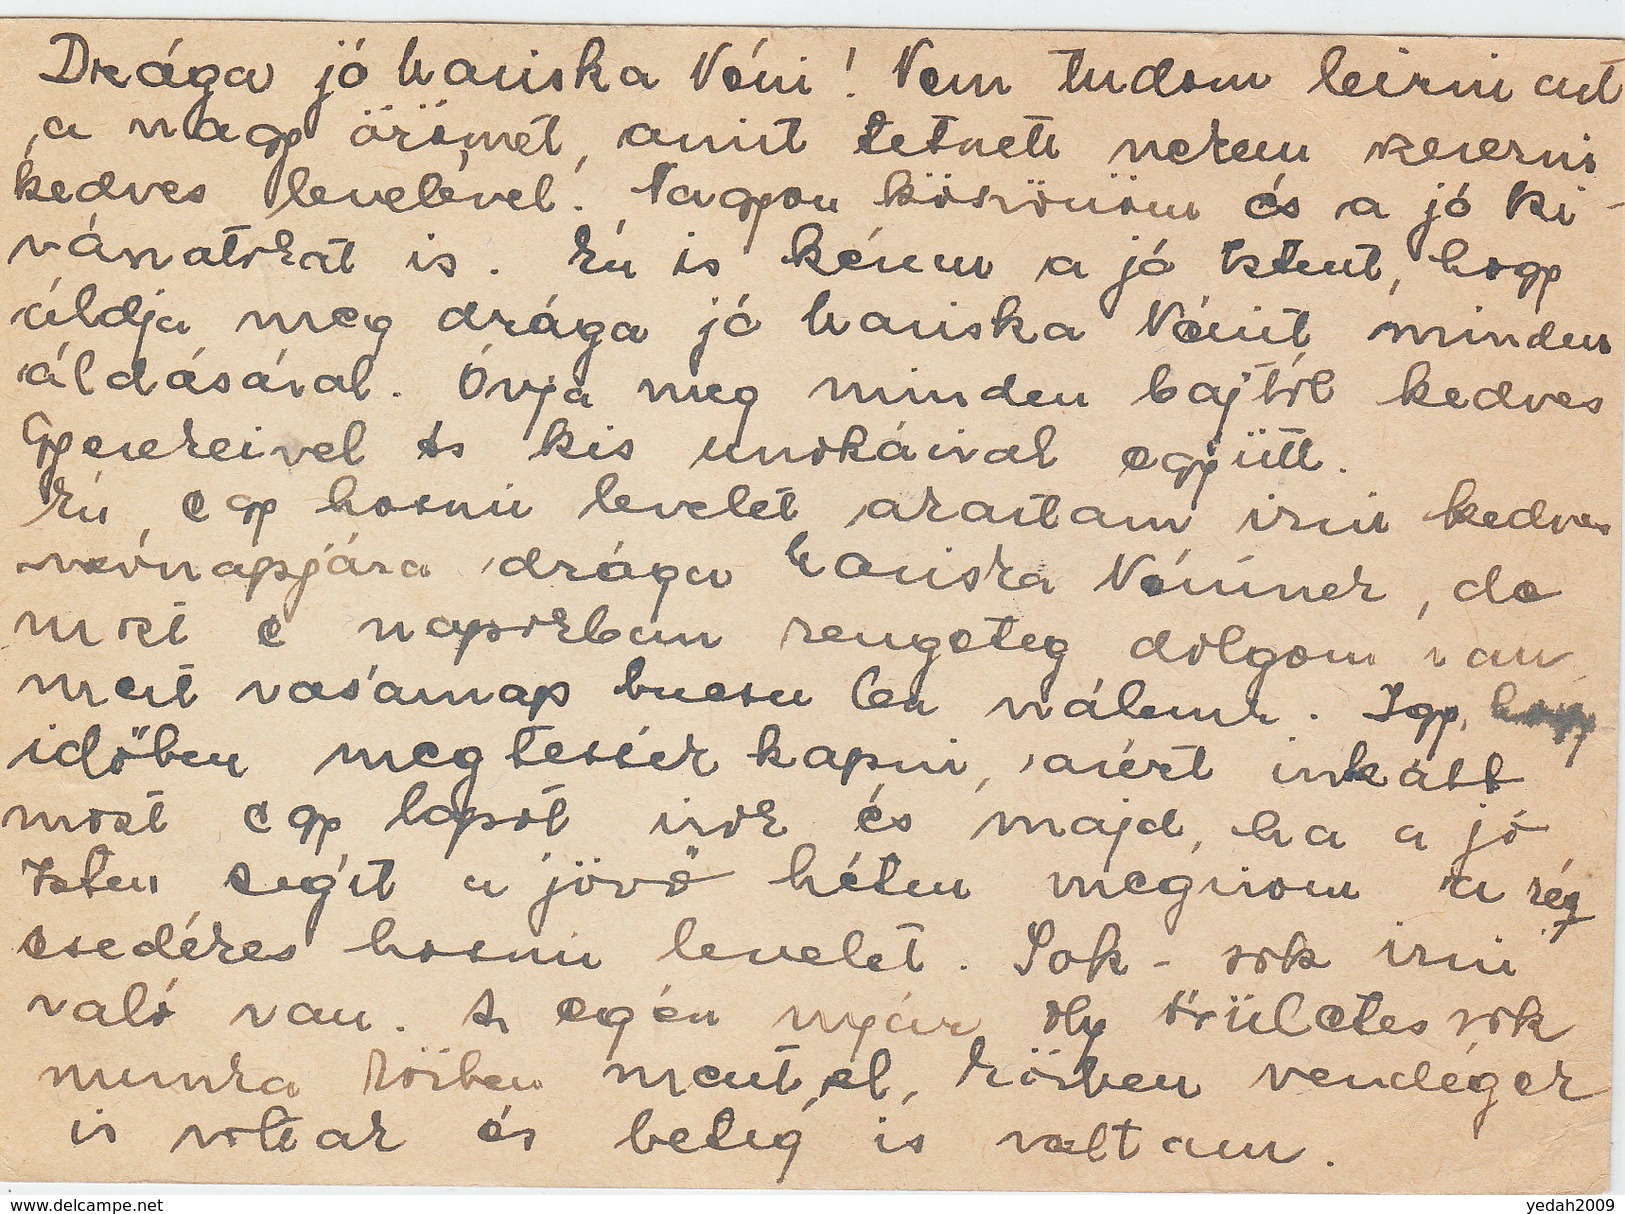 Drága jó Mariska Néni! Nem tudom leirni azt
a nagy örömet, amit tetszett nekem szerezni
kedves levelével. Nagyon köszönöm és a jó ki-
vánatokat is. Én is kérem a jó Istent, hogy
áldja meg drága jó Mariska Nénit minden
áldásával. Óvja meg minden bajtól kedves
Gyerekeivel és kis unokáival együtt.
Én egy hosszú levelet akartam irni kedves
névnapjára drága Mariska Néninek, de
most e napokban rengeteg dolgom van
mert vasárnap bucsu lesz nálunk. Igy, hogy
időben megtessék kapni, azért inkább
most egy lapot irok és majd, ha a jó
Isten segít a jövő héten megirom a rég
esedékes hosszú levelet. Sok-sok irni
való van. Az egész nyár oly őrületes sok
munka közben ment el, közben vendégek
is voltak és beteg is voltam.
yedah2009
© www.delcampe.net